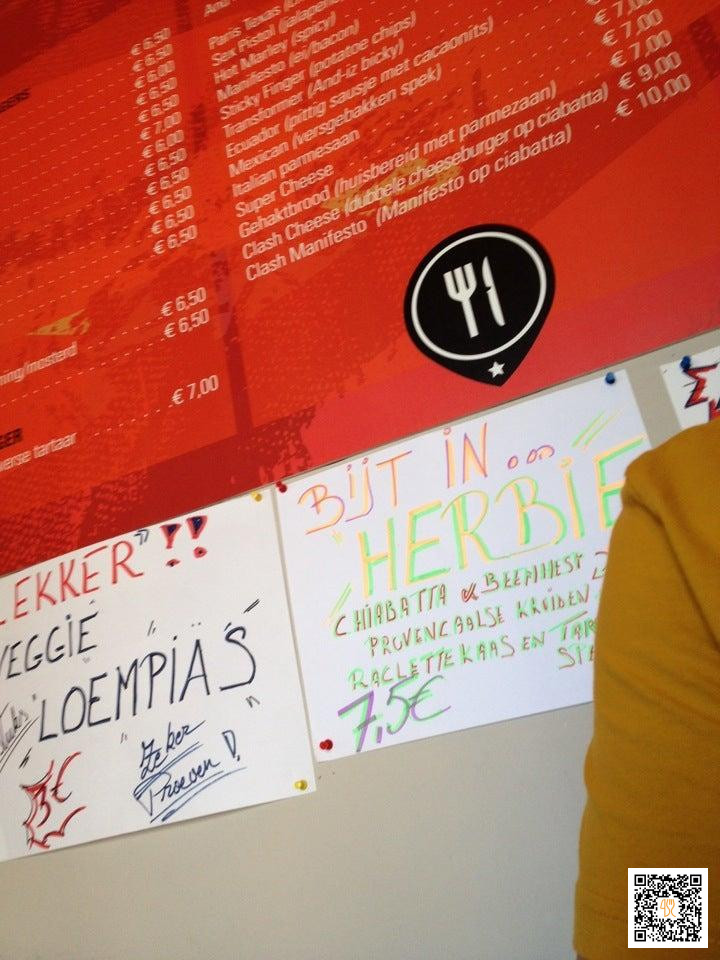 € 6,50
€ 6,50
€ 6,00
€ 6,50
€ 7,00
€ 6,00
€ 6,50
€ 6,50
€ 6,50
€ 6,50
€ 6,50
€ 6,50
ning/mosterd
€ 7,00
EER
verse tartaar
Paris Texas
Sex Pistol (jalapeñ
Hot Marley (spicy)
Manifesto (ei/bacon)
Sticky Finger (potatoe chips)
Transformer (And-iz bicky)
Ecuador (pittig sausje met cacaonits)
Mexican (versgebakken spek)
Italian parmesaan
Super Cheese
Gehaktbrood (huisbereid met parmezaan)
Clash Cheese (dubbele cheeseburger op ciabatta)
Clash Manifesto (Manifesto op ciabatta)
7,00
€ 7,00
€ 7,00
€ 9,00
€ 10,00
LEKKER" !!
VEGGIE
"LOEMPIA'S"
3€
Zeker
Proeven !
BIJT IN...
"HERBIE
CHIABATTA & BEEFMEST
PROVENCAALSE KRUIDEN
RACLETTEKAAS EN TAR
SPE
7,5€